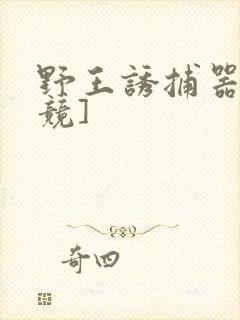 野王誘捕器
競]
奇四